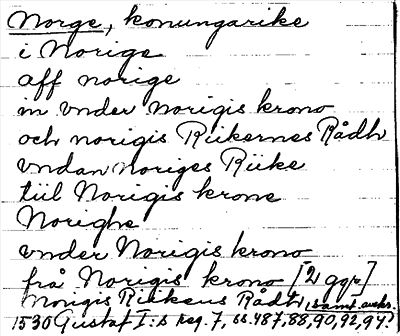 Norge, konungarike
i Norige
aff norige
in vnder Norigis krono
och norigis Riikernes Rådh
vndan Noriges Riike
tiil Norigis krone
Norighe
vnder Norigis krono
frå Norigis krono [2 ggr]
Norigis Riikens Rådh, samt anks.
1530 Gustaf I:s reg. 7, ss. 487, 88, 90, 92, 94?